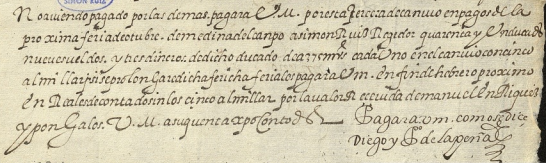 SIMON RUIZ
No aviendo pagado por las demas, pagara V. M. por esta tercera de canvio en pagos de la
proxima feria de otubre de medina del canpo a simon Ruis Regidor quarenta y
nueve sueldos, y tres dineros de dicho ducado de cada Uno con el canvio con cinco
al millar, si se prolongara dicha feria los pagara V m. en fin de hebrero proximo
en Reales de contado sin los cinco al millar por la valor Recevida de manuel enriquez
y pongalos. V. M. a su quenta xpo Con todos
Pagara vm. como se dice
Diego y P de la peña